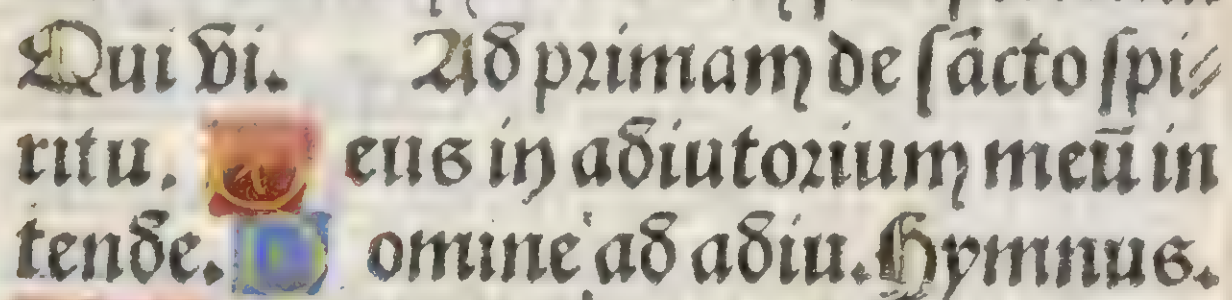 Qui vi. Ad primam de sācto spi⸗
ritu. Deus in adiutorium meū in
tende. Domine ad adiu. Hymnus.